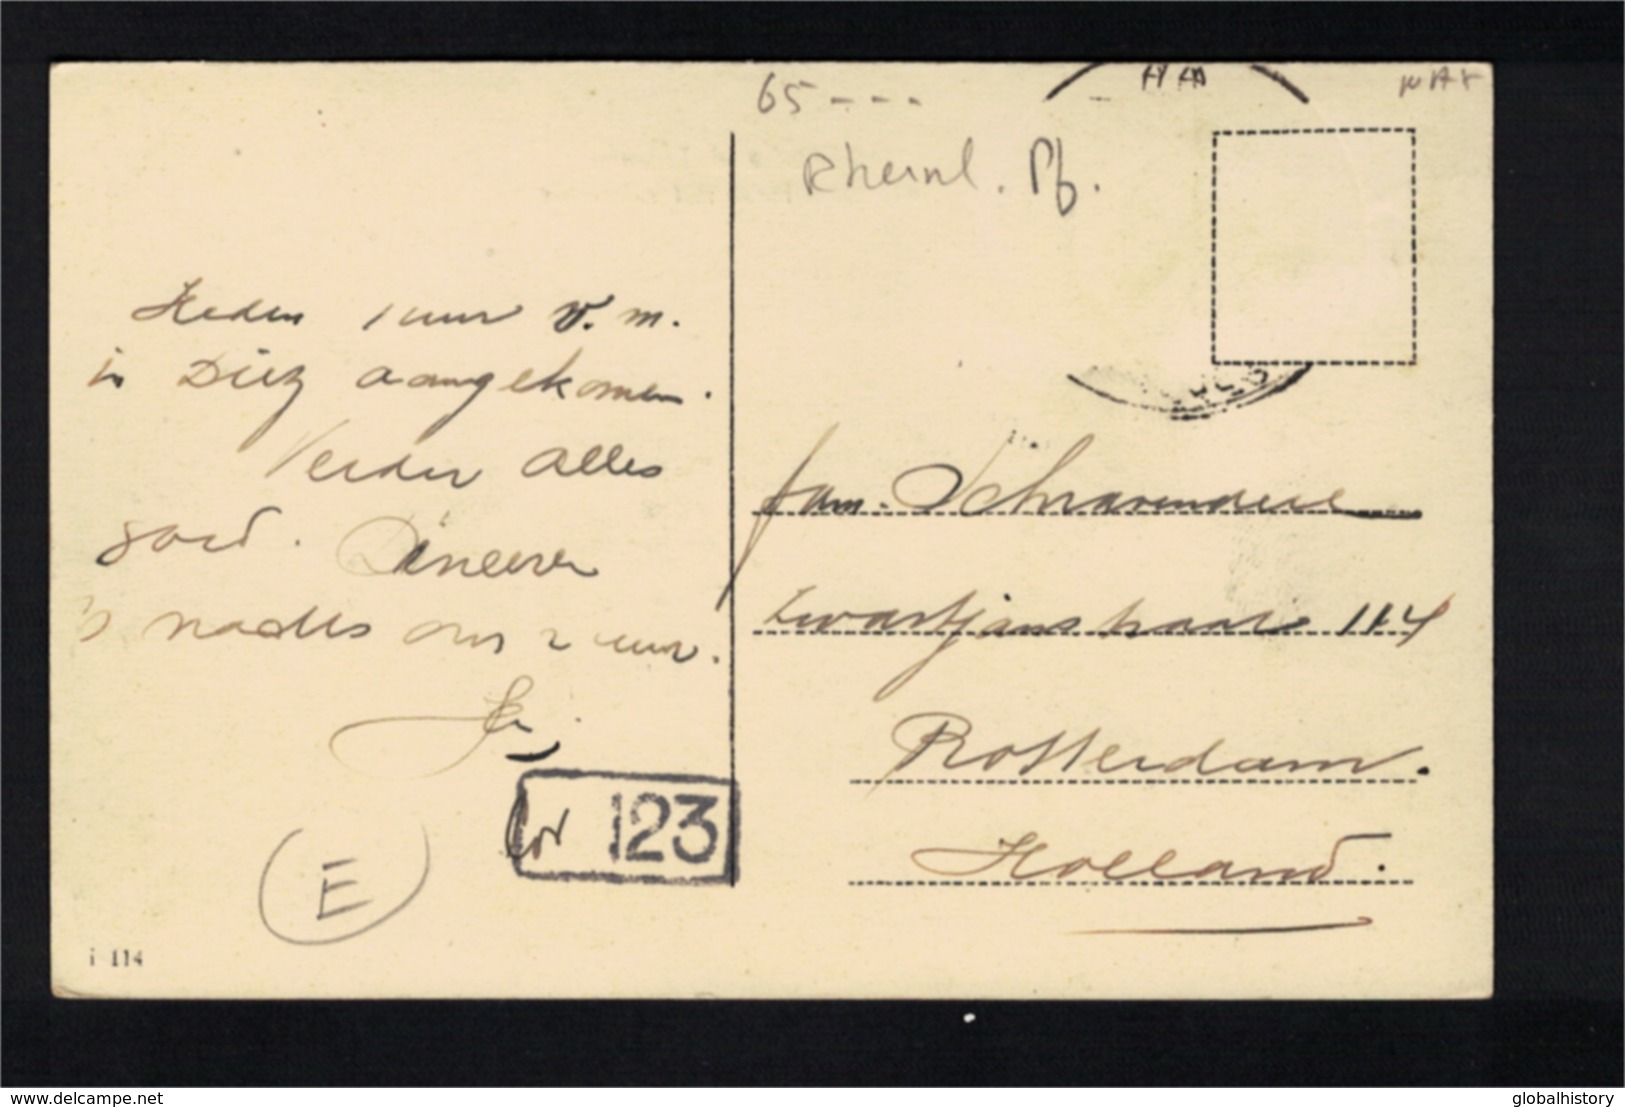 65 - - -
Rheinl. Pf.
Heden 1 uur v.m.
in Diez aangekomen.
Verder alles
goed. Dineeren
's nachts om 2 uur.
fam. Schravendeel
Zwartjanstraat 114
Rotterdam.
Holland.
123
E
i 114
delcampe.net
globalhistory